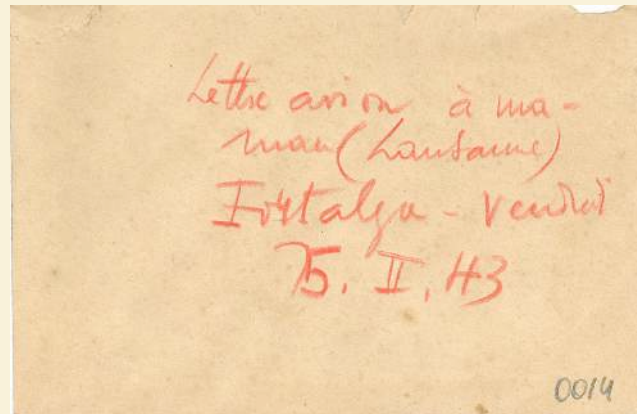 Lettre avion à ma-
man (Lausanne)
Fortalza - Vendredi
5. II. 43
0014